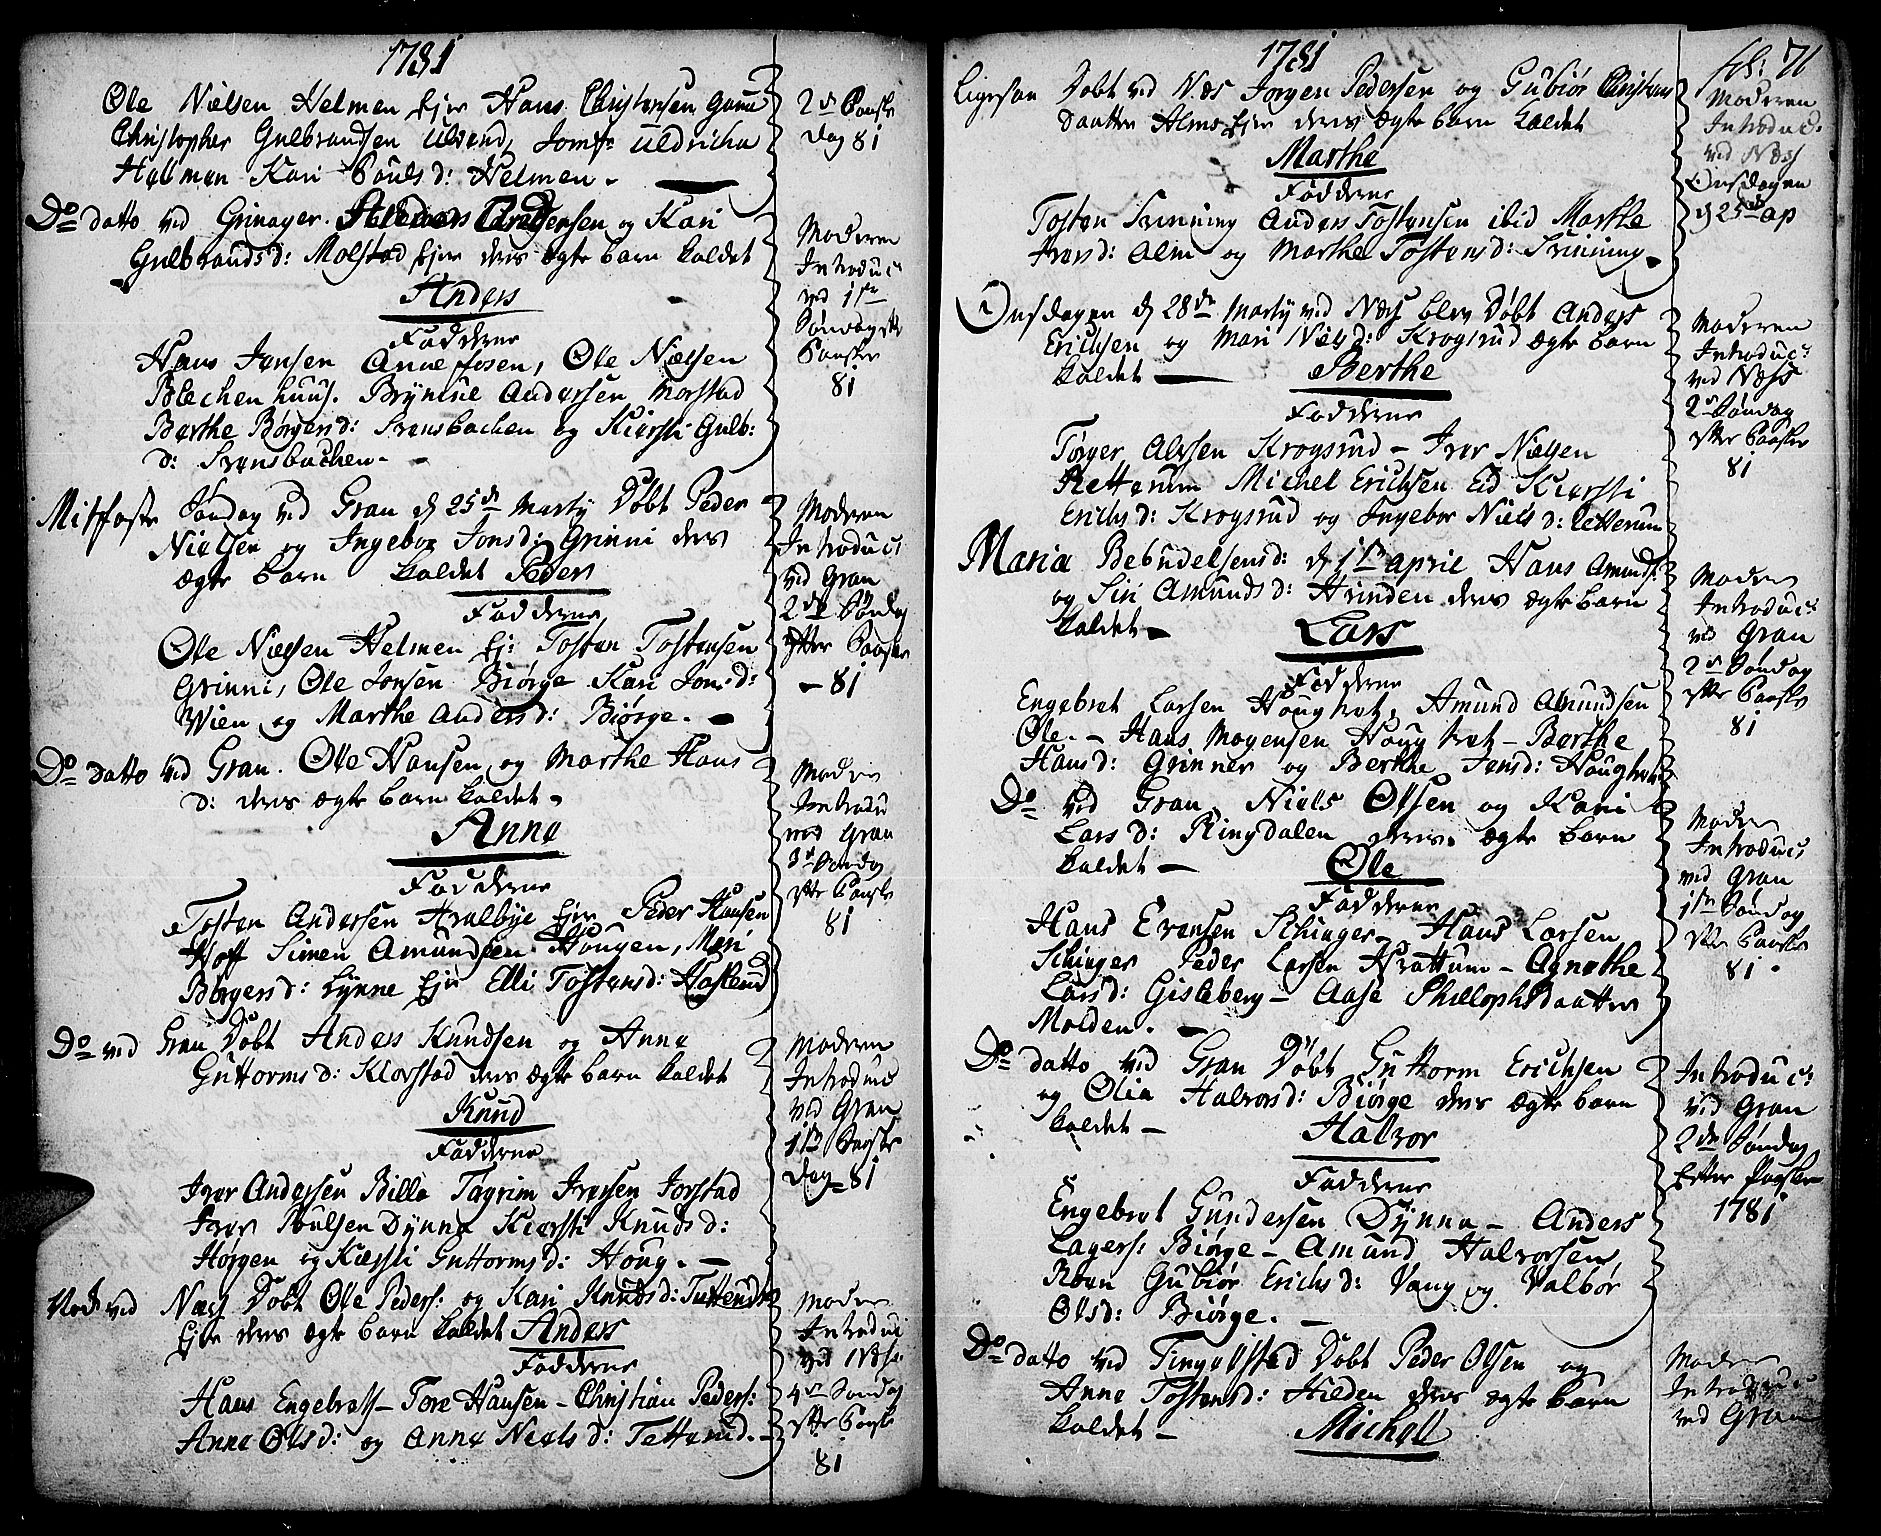 1781
Ole Nielsen Helmen Ejer Hans Christensen
Christopher Gulbrandsen Ulvend, Jomfr Uldricha
Kari Pouls d: Helmen.
2d Paaske
Dag 81
Do datto ved Grinager. og Kari
Gulbrands d: Molstad Ejer ders ægte barn kaldet
Anders
Fadderne
Hans Jensen Ole Nielsen
Blechen huus. Brynild Andersen Morstad
Berthe Børgers d: Svensbachen og Kiersti Gulb:
d: Svensbachen.
Moderen
Introduc:
ved 1ste
Søndag eft
Paaske
81
Mitfaste Søndag ved Gran d 25de Marty Døbt Peder
Nielsen og Ingebor Jons d: Grinni ders
ægte barn kaldet Peder
Fadderne
Ole Nielsen Helmen Ej: Tosten Tostensen
Grinni, Ole Jonsen Biørge Kari Jons d:
Wien og Marthe Anders d: Biørge.
Moderen
Introduc:
ved Gran
2de Søndag
efter Paaske
81
Do datto ved Gran. Ole Hansen og Marthe Hans
d: ders ægte barn kaldet
Anne
Fadderne
Tosten Andersen Hvalbye Ejer Peder Hansen
Hoff Simen Amundsen Hougen, Mari
Børgers d: Lynne Ejer Elli Tostens d:
Modern
Introdu
ved Gran
3d Søndag
efter Paaske
81
Do ved Gran Døbt Anders Knudsen og Anne
Guttorms d: Klovstad ders ægte barn kaldet
Knud
Fadderne
Iver Andersen Bilden Tagrim Iversen Jorstad
Iver Poulsen Dynna Kiersti Knuds d:
Horgen og Kiersti Guttorms d: Houg.
Moderen
Introduc
ved Gran
1ste Paaske
Dag 81
ved Næs Døbt Ole Peders: og Kari Knuds d:
Ejer ders ægte barn kaldet Anders
Fadderne
Hans Engebrets Tore Hansen Christian Peders:
Anne Ols d: og Anne Niels d:
Modern
Introduc
ved Næs
4de Søndag
efter Paaske
81
1781
fol: 71
Ligesaa Døbt ved Næs Jørgen Pedersen og Gubiør Christens
Daatter Alms Ejer ders ægte barn kaldet
Marthe
Fadderne
Tosten Svinning Anders Tostensen ibid Marthe
Ivers d: Alm og Marthe Tostens d: Svinning.
Moderen
Introduc:
ved Næs
Onsdagen
d 25de ap
Onsdagen d 28de Marty ved Næs blev Døbt Anders
Erichsen og Mari Niels d: Krogsrud ægte barn
kaldet Berthe
Fadderne
Torger Alfsen Krogsrud - Iver Nielsen
Michel Erichsen Eid Kiersti
Erichs d: Krogsrud og Ingebor Niels d:
Moderen
Introduc:
ved Næss
2d Søndag
efter Paaske
81
Maria Bebudelsens d: d 1ste april Hans Amunds:
og Siri Amunds d: Hvinden ders ægte barn
kaldet Lars
Fadderne
Engebret Larsen Amund Amundsen
Ole. - Hans Mogensen - Berthe
Hans d: Grinner og Berthe Jens d:
Modern
Introduc:
ved Gran
2d Søndag
efter Paaske
81
Do ved Gran Niels Olsen og Kari
Lars d: Ringdalen ders ægte barn
kaldet Ole
Fadderne
Hans Evensen Schiager Hans Larsen
Schiager Peder Larsen Hvattum - Agnethe
Lars d: Gisleberg - Aase Phillophs daatter
Molden.
Modern
Introduc:
ved Gran
1ste Søndag
efter Paaske
81.
Do datto ved Gran Døbt Guttorm Erichsen
og Olia Halvors d: Biørge ders ægte barn
kaldet Halvor
Fadderne
Engebret Gundersen Dynna - Anders
Lagers: Biørge - Amund Halvorsen
Roen Gubiør Erichs d: Vang og Valbør
Ols d: Biørge.
Introduc:
ved Gran
2de Søndag
Efter Paaske
1781
Do datto ved Tingelstad Døbt Peder Olsen og
Anne Tostens d: Hilden ders ægte barn
kaldet Michell
Modern
Introduc
ved Gran